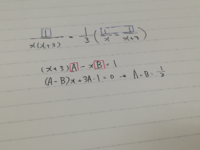 1/x(x+3) = 1/3 (1/x - 1/x+3)
(x+3)A - xB = 1
(A-B)x + 3A - 1 = 0 → A = B = 1/3